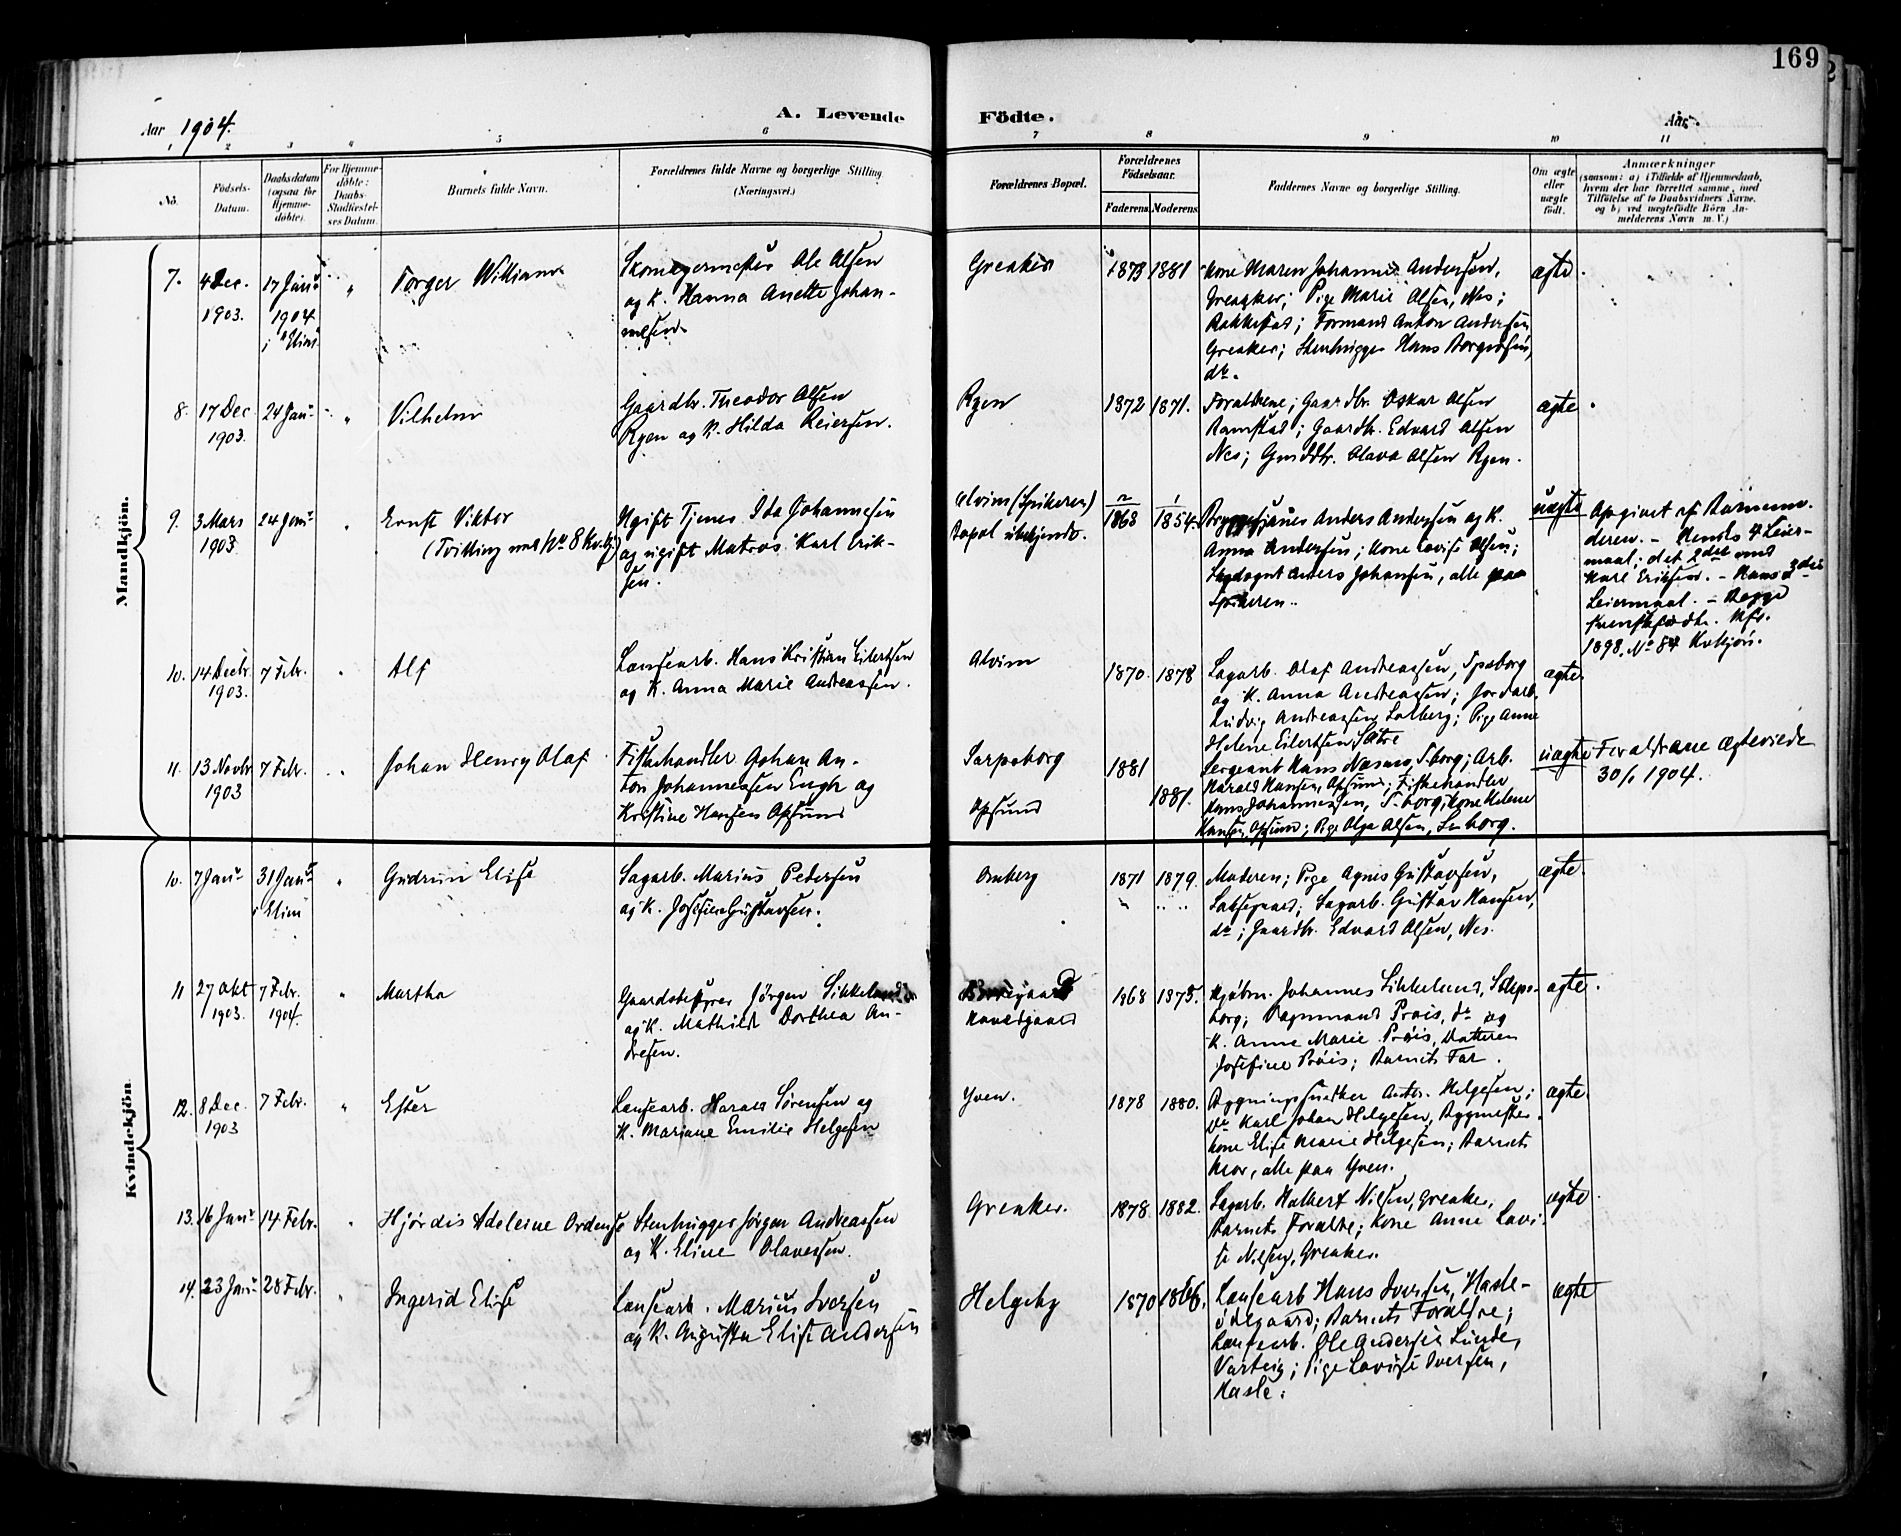 169
Aar 1904.
A. Levende Födte.
Aar
1 2 3 4 5 6 7 8 9 10 11
No.
Födsels-Datum.
Daabsdatum (ogsaa for Hjemme-döbte).
For Hjemme-döbte: Daabs-Stadfæstel-ses Datum.
Barnets fulde Navn.
Forældrenes fulde Navne og borgerlige Stilling (Næringsvei.)
Forældrenes Bopæl.
Forældrenes Födselsaar.
Faderens Moderens
Faddernes Navne og borgerlige Stilling.
Om ægte eller uægte födt.
Anmærkninger
(saasom: a) i Tilfælde af Hjemmedaab,
hvem der har forrettet samme, med
Tilföielse af to Daabsvidners Navne,
og b) ved uægtefödte Börn An-
melderens Navn m. V.)
Mandkjön.
7. 4 Dec. 1903. 17 Janr 1904 i Elim " Torger William
Skomagermester Ole Olsen
og K. Hanna Anette Johan-
nesen
Greaker 1873 1881
Kone Maren Johanne Andersen,
Greaker; Pige Marie Olsen, Nes;
Rakkestad; Formand Anton Andersen
Greaker; Stenhugger Hans Borgersen,
do.
ægte.
8. 17 Dec 1903. 24 Janr " Vilhelm
Gaardbr. Theodor Olsen
Ryen og K. Hilda Reiersen.
Ryen 1872 1871.
Forældrene; Gaardbr. Oskar Olsen
Ramstad; Gaardbr. Edvard Olsen
Nes; Gmddtr. Olava Olsen Ryen.
ægte
9. 3 Mars 1903. 24 Janr " Ernst Viktor
(Tvilling med No 8 Kvkj)
Ugift Tjenes. Ida Johannesen
og ugift Matros Karl Erik-
sen.
Alvim (Spikeren)
Bopæl ubekjendt.
2/1868 1/1854.
Anders Andersen og K.
Anna Andersen; Kone Lovise Olsen;
Anders Johansen, alle paa
Spikeren.
uægte
Opgivet af Barnemo-
deren. – Hendes 4 Leier-
maal; det 2det med
Karl Eriksen. – Hans 3die
Leiermaal. – Begge
Kfr.
1898. No 84 Kvkjön.
10. 14 Decbr 1903. 7 Febr. " Alf
Lænsearb. Hans Kristian Eilertsen
og K. Anna Marie Andreassen.
Alvim 1870. 1878
Sagarb. Olaf Andreassen, Spsborg
og K. Anna Andreassen; Jordarb.
Ludvig Andreassen Solberg; Pige Anne
Helene Eilertsen Sætre
ægte.
11. 13 Novbr 1903 7 Febr. " Johan Henry Olaf
Fiskehandler Johan An-
ton Johannessen Engh og
Kristine Hansen Opsund
Sarpsborg
Opsund
1881 1881.
Sergeant Hans Næsnes, S.borg; Arb.
Harald Hansen, Opsund; Fiskehandler
Hans Johannessen, S.borg; Kone Helene
Hansen, Opsund; Pige Olga Olsen, S.borg.
uægte
Forældrene ægteviede
30/1 1904.
Kvindekjön.
10. 7 Janr 31 Janr i Elim " Gudrun Elise
Sagarb. Marius Pedersen
og K. Josefine Gustavsen.
Omberg 1871 1879.
Moderen; Pige Agnes Gustavsen,
Sagarb. Gustav Hansen,
do; Gaardbr. Edvard Olsen, Nes.
ægte.
11 27 Okt 1903. 7 Febr. 1904. " Martha
Gaardsbestyrer Jörgen Sikkeland
og K. Mathilde Dorthea An-
dresen.
Borregaard
1868 1875.
Kjöbm. Johannes Sikkeland, Sarps-
borg; Prois, do og
K. Anne Marie Pröis, Datteren
Josefine Pröis; Barnets Far.
ægte.
12. 8 Dec. 1903 7 Febr. " Ester
Lænsearb. Harald Sörensen og
K. Mariane Emilie Helgesen
Yven. 1878 1880.
Bygningssnedker Anton Helgesen;
do Karl Johan Helgesen, Bygmester-
kone Elise Marie Helgesen; Barnets
Mor, alle paa Yven.
ægte.
13. 16 Janr 14 Febr. " Hjördis Adeleine Ordense
Stenhugger Jörgen Andreassen
og K. Eline Olavessen.
Greaker. 1878. 1882.
Sagarb. Halbert Nilsen, Greaker,
Barnets Forældre; Kone Anne Lovi-
se Nilsen, Greaker.
ægte.
14. 23 Janr 28 Febr. " Ingerid Elise
Lænsearb. Marius Iversen
og K. Augusta Elise Andersen
Helgeby 1870 1866.
Lænsearb Hans Iversen, Hasle-
ödegaard; Barnets Forældre;
Lænsearb. Ole Andersen Lunde,
Varteig; Pige Lovise Iversen,
Hasle.
ægte